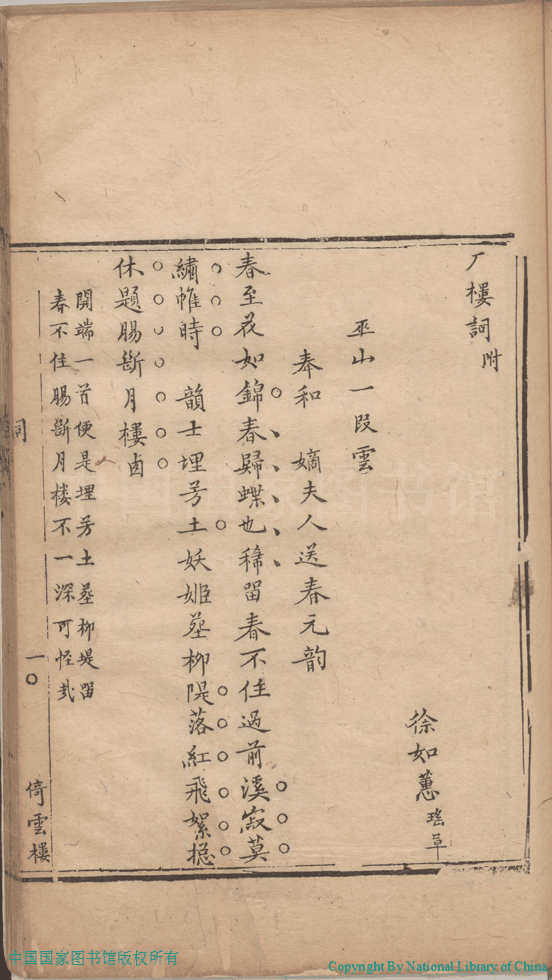 厂樓詞附
徐如蕙瑤草
巫山一段雲
奉和　嫡夫人送春元韵
春至花如錦春歸蝶也稀留春不住過前溪寂莫
繡帷時　韻士埋芳土妖姬塟柳隄落紅飛絮搃
休題腸斷月樓西
開端一首便是埋芳土塟柳堤留
春不住腸斷月楼不一深可怪哉
詞
一
倚雲樓
中国国家图书馆版权所有
Copyright By National Library of China